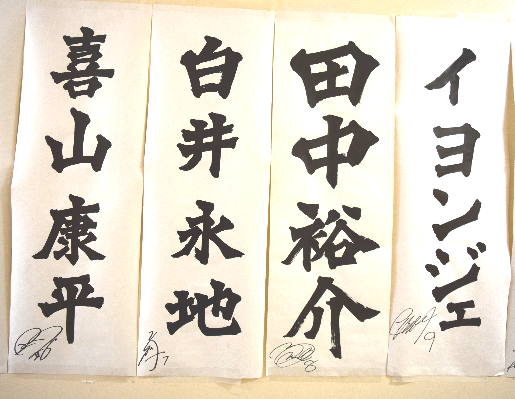 イヨンジェ
9
田中裕介
8
白井永地
7
喜山康平
6